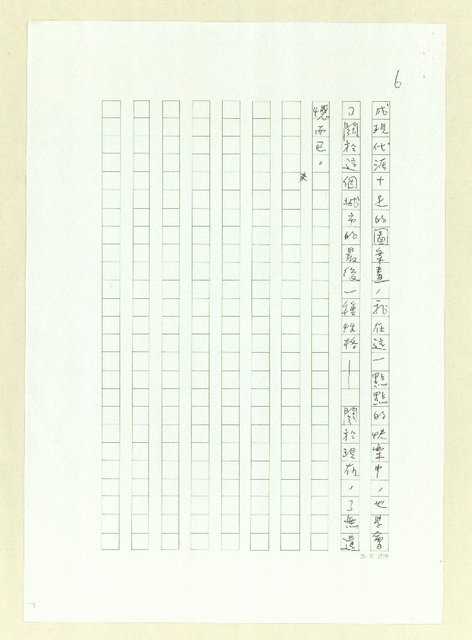 6
成現代派十足的圖案畫，我在這一點點的快樂中，也學會
了關於這個城市的最後一種性格——關於現在，了無遺
憾而已。